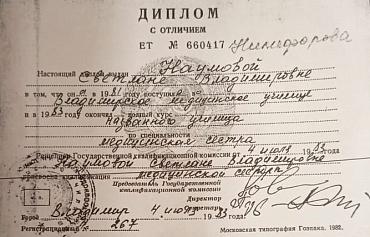 ДИПЛОМ
С ОТЛИЧИЕМ
ЕТ № 660417 Никифорова
Настоящий выдан Наумовой
Светлане Владимировне
в том, что он а в 1981 году поступил а в
Владимирское медицинское училище
и в 1983 году окончил а полный курс
названного училища
по специальности
медицинская сестра
Решением Государственной квалификационной комиссии от 4 июля 1983
Наумовой Светлане Владимировне
присвоена квалификация медицинской сестры
Председатель Государственной
квалификационной комиссии
Директор
Секретарь
Город Владимир 4 июля 1983 г.
Регистрационный № 267
Московская типография Гознака. 1982.